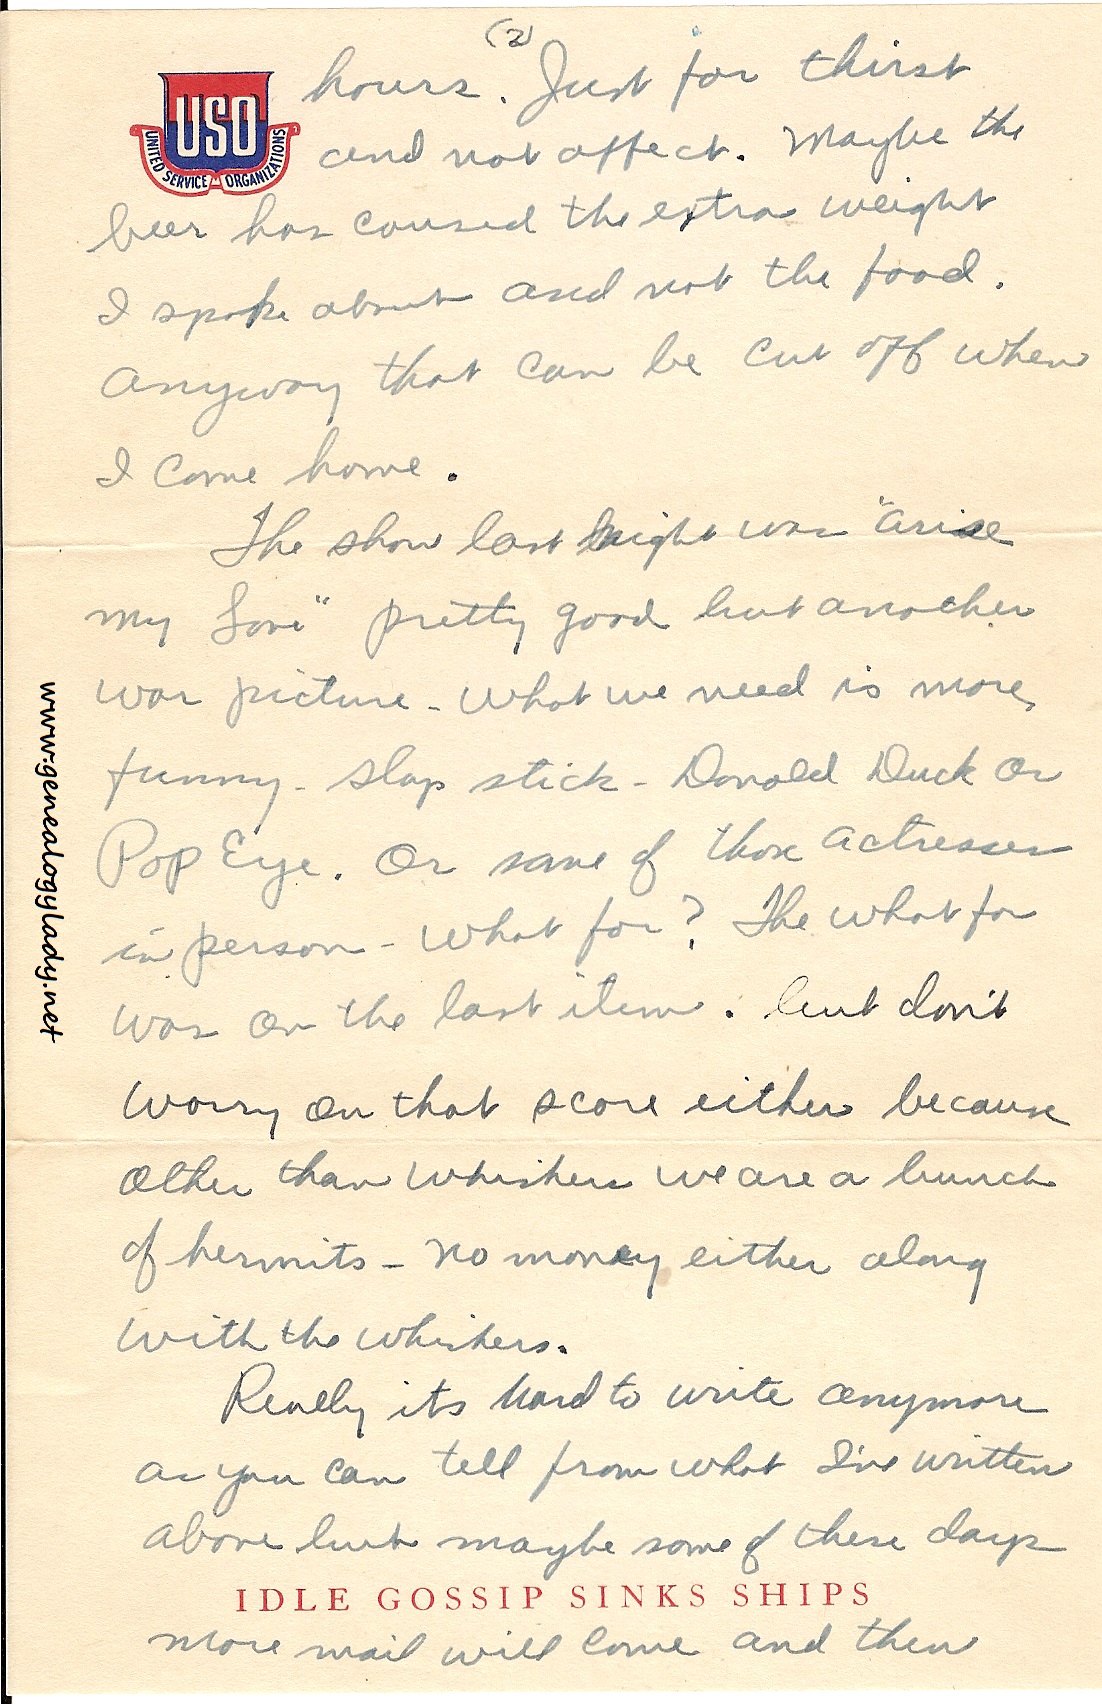 (2)
USO
UNITED SERVICE ORGANIZATIONS
hours. Just for thirst
and not affect. Maybe the
beer has caused the extra weight
I spoke about and not the food.
Anyway that can be cut off when
I come home.
The show last night was "Arise
my Love" pretty good but another
war picture - What we need is more
funny - slap stick - Donald Duck or
Pop Eye. Or some of those actresses
in person - What for? The what for
was on the last item. But don't
worry on that score either because
other than whiskers we are a bunch
of hermits - no money either along
with the whiskers.
Really its hard to write anymore
as you can tell from what I've written
above but maybe some of these days
IDLE GOSSIP SINKS SHIPS
more mail will come and then
www.genealogylady.net